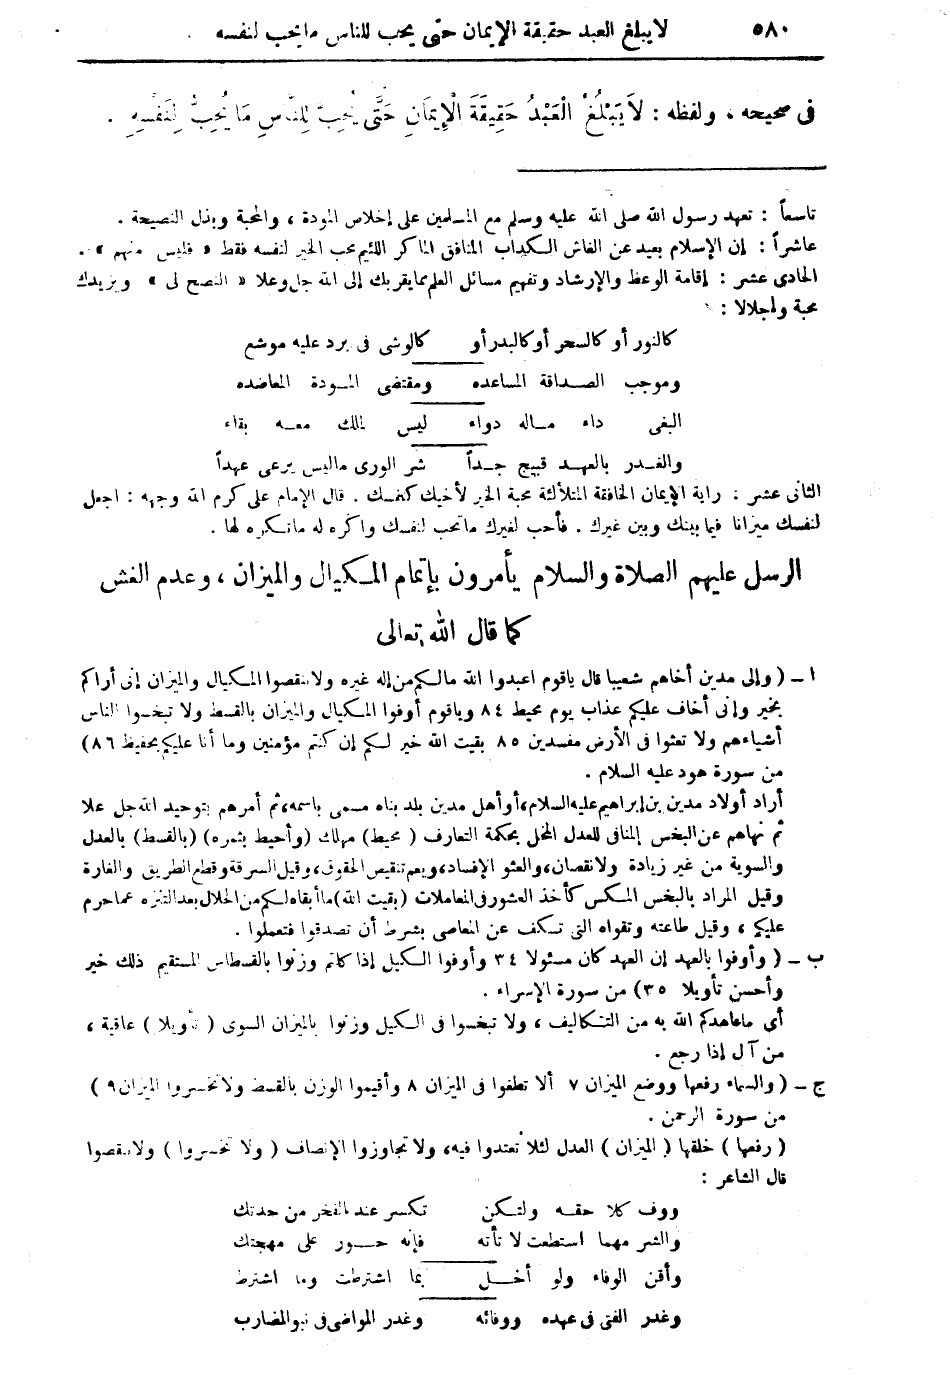 ٥٨٠ لا يبلغ العبد حقيقة الإيمان حتى يحب للناس ما يحب لنفسه
فى صحيحه ، ولفظه : لاَ يَبْلُغُ الْعَبْدُ حَقِيقَةَ الْإِيمَانِ حَتَّى يُحِبَّ لِلنَّاسِ مَا يُحِبُّ لِنَفْسِهِ .
تاسعاً : تعهد رسول الله صلى الله عليه وسلم مع المسلمين على إخلاص المودة ، والمحبة وبذل النصيحة .
عاشراً : إن الإسلام بعيد عن الغاش الكذاب المنافق الماكر اللئيم محب الخير لنفسه فقط « فليس منهم » .
الحادى عشر : إقامة الوعظ والإرشاد وتفهيم مسائل العلم مما يقربك إلى الله جل وعلا « النصح لى » ويزيدك
محبة وإجلالا :
كالنور أو كالسحر أو كالبدر أو كالوشى فى برد عليه موشع
وموجب الصداقة المساعده ومقتضى المودة المعاضده
البغى داء ماله دواء ليس لملك معه بقاء
والغدر بالعهد قبيح جداً شر الورى ماليس يرعى عهداً
الثانى عشر : راية الإيمان الخافقة المتلألئة محبة الخير لأخيك كنفسك . قال الإمام على كرم الله وجهه : اجعل
لنفسك ميزانا فيما بينك وبين غيرك . فأحب لغيرك ما تحب لنفسك واكره له ماتكره لها .
الرسل عليهم الصلاة والسلام يأمرون بإتمام المكيال والميزان ، وعدم الغش
كما قال الله تعالى
ا ــ ( وإلى مدين أخاهم شعيبا قال ياقوم اعبدوا الله مالكم من إله غيره ولا تنقصوا المكيال والميزان إنى أراكم
بخير وإنى أخاف عليكم عذاب يوم محيط ٨٤ وياقوم أوفوا المكيال والميزان بالقسط ولا تبخسوا الناس
أشياءهم ولا تعثوا فى الأرض مفسدين ٨٥ بقيت الله خير لكم إن كنتم مؤمنين وما أنا عليكم بحفيظ ٨٦)
من سورة هود عليه السلام .
أراد أولاد مدين بن إبراهيم عليه السلام، أو أهل مدين بلد بناه مسمى باسمه، ثم أمرهم بتوحيد الله جل علا
ثم نهاهم عن البخس المنافى للعدل المخل بحكمة التعارف ( محيط ) مهلك (وأحيط بثمره) (بالقسط) بالعدل
والسوية من غير زيادة ولا نقصان، والعثو الإفساد، ويعم تنقيص الحقوق، وقيل السرقة وقطع الطريق والغارة
وقيل المراد بالبخس المكس كأخذ العشور فى المعاملات (بقيت الله) ما أبقاه لكم من الحلال بعد التنزه عما حرم
عليكم ، وقيل طاعته وتقواه التى تكف عن المعاصى بشرط أن تصدقوا فتعملوا .
ب ــ ( وأوفوا بالعهد إن العهد كان مسئولا ٣٤ وأوفوا الكيل إذا كلتم وزنوا بالقسطاس المستقيم ذلك خير
وأحسن تأويلا ٣٥) من سورة الإسراء .
أى ماعاهدكم الله به من التكاليف ، ولا تبخسوا فى الكيل وزنوا بالميزان السوى ( تأويلا ) عاقبة ،
من آل إذا رجع .
ج ــ ( والسماء رفعها ووضع الميزان ٧ ألا تطغوا فى الميزان ٨ وأقيموا الوزن بالقسط ولا تخسروا الميزان ٩ )
من سورة الرحمن .
( رفعها ) خلقها ( الميزان ) العدل لئلا تعتدوا فيه، ولا تجاوزوا الإنصاف ( ولا تخسروا ) ولا تنقصوا
قال الشاعر :
ووف كلا حقه ولتكن تكسر عند الفخر من حدتك
والشر مهما استطعت لا تأته فإنه حور على مهجتك
وأقن الوفاء ولو أخل بما اشترطت وما اشترط
وغدر الفتى فى عهده ووفائه وغدر المواضى فى نبو المضارب